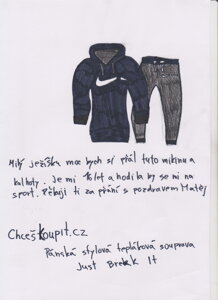 Milý ježíšku moc bych si přál tuto mikinu a
kalhoty. Je mi let a hodila by se mi na
sport. Děkuji ti za přání s pozdravem Matěj
Chceškoupit.cz
Pánská stylová tepláková souprava
Just Break It